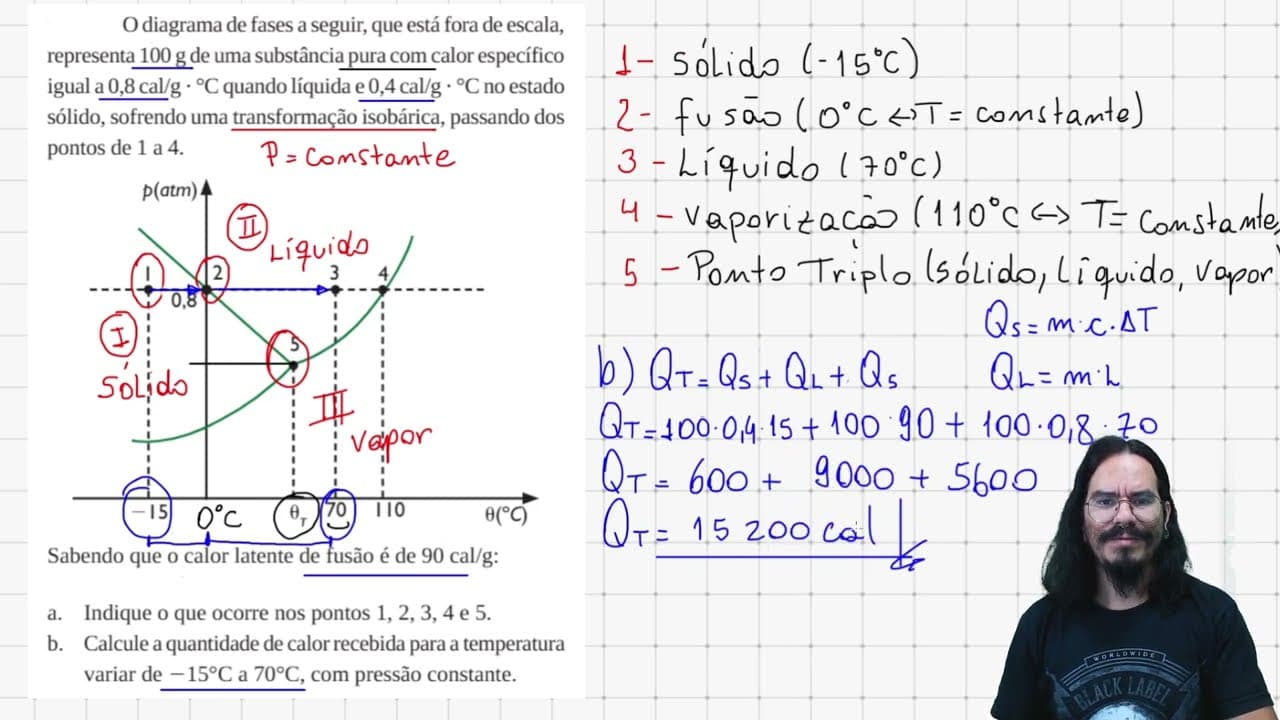 O diagrama de fases a seguir, que está fora de escala,
representa 100 g de uma substância pura com calor específico
igual a 0,8 cal/g · °C quando líquida e 0,4 cal/g · °C no estado
sólido, sofrendo uma transformação isobárica, passando dos
pontos de 1 a 4.
P = constante
p(atm)
II
Líquido
1 2 3 4
0,8
I
5
SÓLIDO
III
vapor
−15 0°C θT 70 110 θ(°C)
Sabendo que o calor latente de fusão é de 90 cal/g:
a. Indique o que ocorre nos pontos 1, 2, 3, 4 e 5.
b. Calcule a quantidade de calor recebida para a temperatura
variar de −15°C a 70°C, com pressão constante.
1- Sólido (-15°C)
2- fusão (0°C ↔ T = constante)
3 - Líquido (70°C)
4 - vaporização (110°C ↔ T = constante,
5 - Ponto Triplo (sólido, Líquido, vapor
QS = m·c·ΔT
b) QT = QS + QL + QS
QL = m·L
QT = 100·0,4·15 + 100·90 + 100·0,8·70
QT = 600 + 9000 + 5600
QT = 15 200 cal
WORLDWIDE
BLACK LABEL